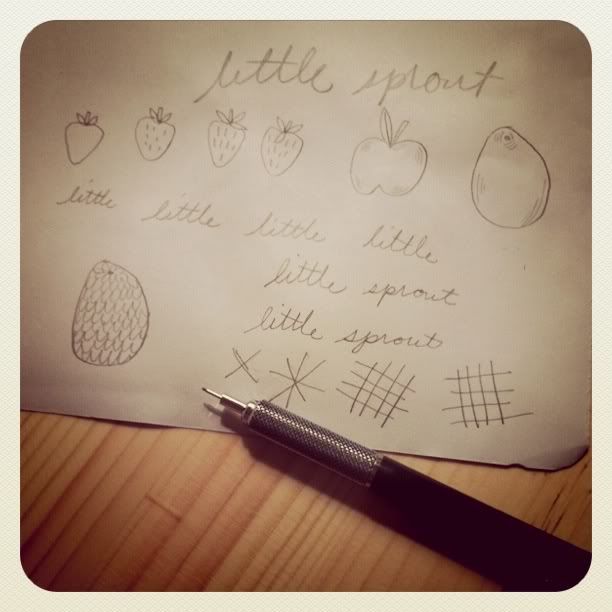 little sprout
little little little little
little sprout
little sprout